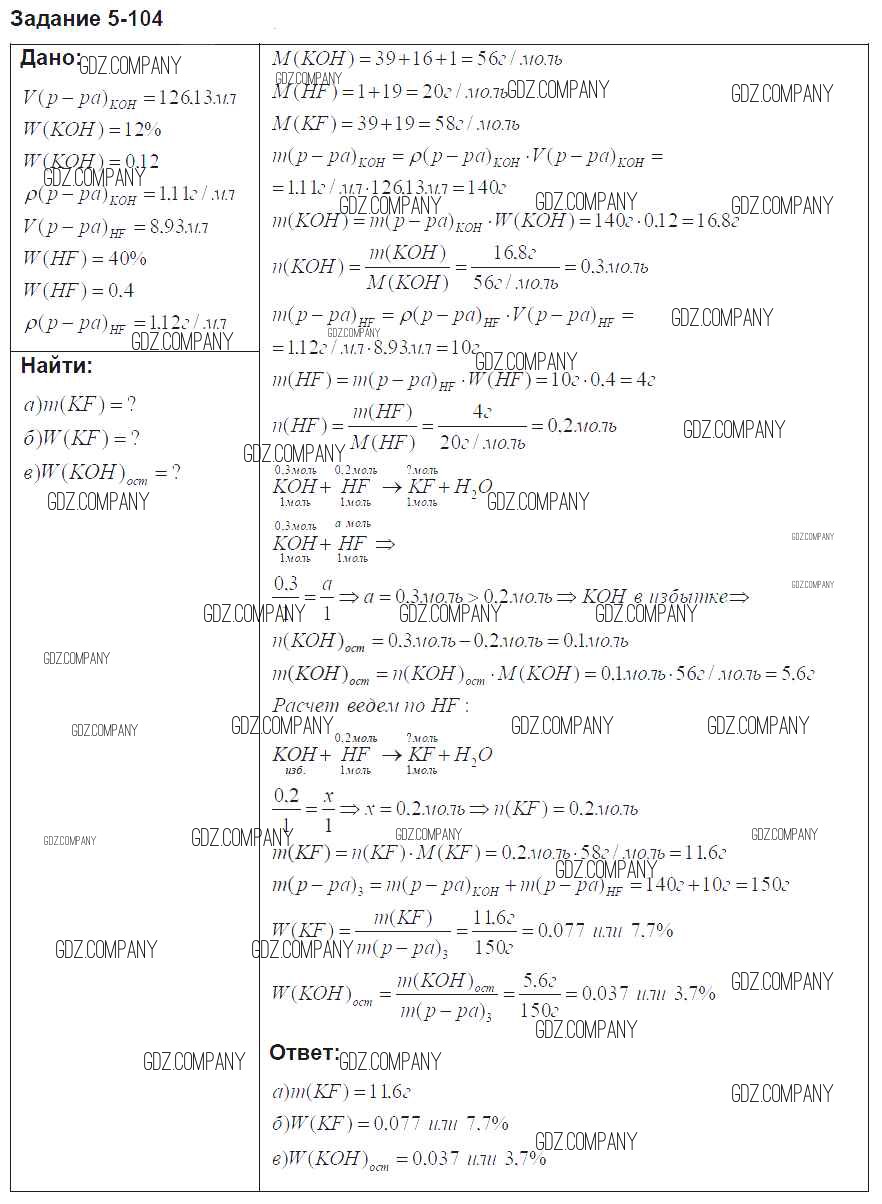 Задание 5-104
Дано:
V(р−ра)KOH = 126.13мл
W(KOH) = 12%
W(KOH) = 0.12
ρ(р−ра)KOH = 1.11г/мл
V(р−ра)HF = 8.93мл
W(HF) = 40%
W(HF) = 0.4
ρ(р−ра)HF = 1.12г/мл
Найти:
а)m(KF) = ?
б)W(KF) = ?
в)W(KOH)ост = ?
M(KOH) = 39+16+1 = 56г/моль
M(HF) = 1+19 = 20г/моль
M(KF) = 39+19 = 58г/моль
m(р−ра)KOH = ρ(р−ра)KOH · V(р−ра)KOH =
= 1.11г/мл · 126.13мл = 140г
m(KOH) = m(р−ра)KOH · W(KOH) = 140г · 0.12 = 16.8г
n(KOH) = m(KOH)/M(KOH) = 16.8г/56г/моль = 0.3моль
m(р−ра)HF = ρ(р−ра)HF · V(р−ра)HF =
= 1.12г/мл · 8.93мл = 10г
m(HF) = m(р−ра)HF · W(HF) = 10г · 0.4 = 4г
n(HF) = m(HF)/M(HF) = 4г/20г/моль = 0.2моль
0.3моль 0.2моль ?моль
KOH + HF → KF + H2O
1моль 1моль 1моль
0.3моль а моль
KOH + HF ⇒
1моль 1моль
0.3/1 = а/1 ⇒ а = 0.3моль > 0.2моль ⇒ KOH в избытке ⇒
n(KOH)ост = 0.3моль − 0.2моль = 0.1моль
m(KOH)ост = n(KOH)ост · M(KOH) = 0.1моль · 56г/моль = 5.6г
Расчет ведем по HF :
0.2моль ?моль
KOH + HF → KF + H2O
изб. 1моль 1моль
0.2/1 = x/1 ⇒ x = 0.2моль ⇒ n(KF) = 0.2моль
m(KF) = n(KF) · M(KF) = 0.2моль · 58г/моль = 11.6г
m(р−ра)3 = m(р−ра)KOH + m(р−ра)HF = 140г + 10г = 150г
W(KF) = m(KF)/m(р−ра)3 = 11.6г/150г = 0.077 или 7.7%
W(KOH)ост = m(KOH)ост/m(р−ра)3 = 5.6г/150г = 0.037 или 3.7%
Ответ:
а)m(KF) = 11.6г
б)W(KF) = 0.077 или 7.7%
в)W(KOH)ост = 0.037 или 3.7%
GDZ.COMPANY